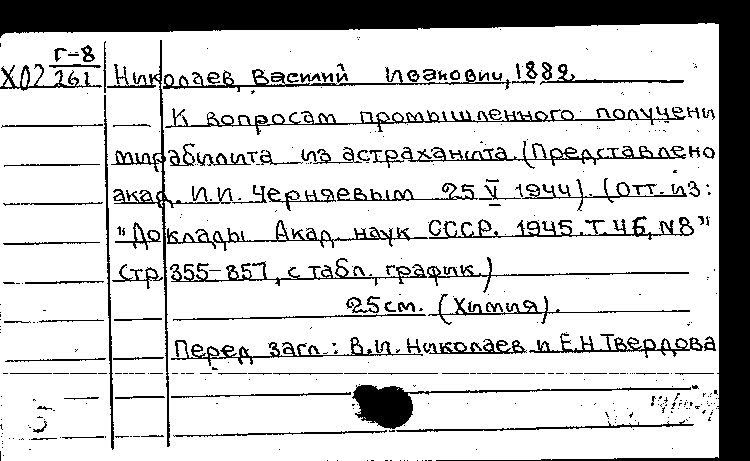 Г-8
Х02 261 Николаев, Василий Иванович, 1882
К вопросам промышленного получени
мирабилита из астраханита. (Представлено
акад. И.И. Черняевым 25 V 1944). (Отт. из:
"Доклады Акад. наук СССР. 1945. Т. 46, N8"
Стр 355-857, с табл., график.)
25 см. (Химия).
Перед загл: В.И. Николаев и Е.Н Твердова
5